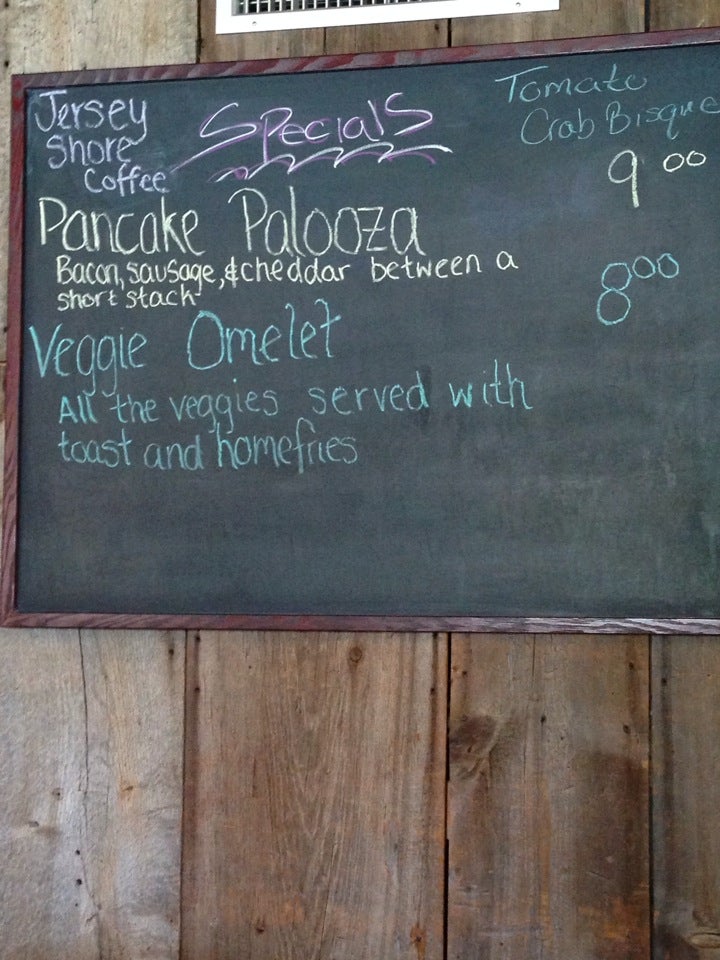 Jersey
Shore
Coffee
Specials
Tomato
Crab Bisque
Pancake Palooza
9 00
Bacon, sausage, & cheddar between a
short stack
Veggie Omelet
8 00
All the veggies served with
toast and homefries